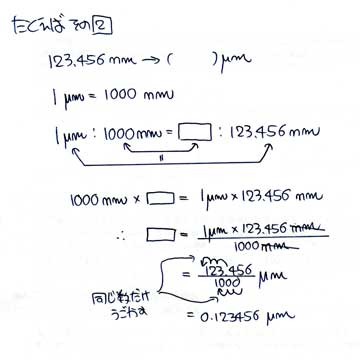 たとえば その2
123.456 mm → (　　) μm
1 μm = 1000 mm
1 μm : 1000 mm = □ : 123.456 mm
〃
1000 mm × □ = 1 μm × 123.456 mm
∴ □ = 1 μm × 123.456 mm / 1000 mm
= 123.456 / 1000 μm
同じ数だけ
うごかす
= 0.123456 μm